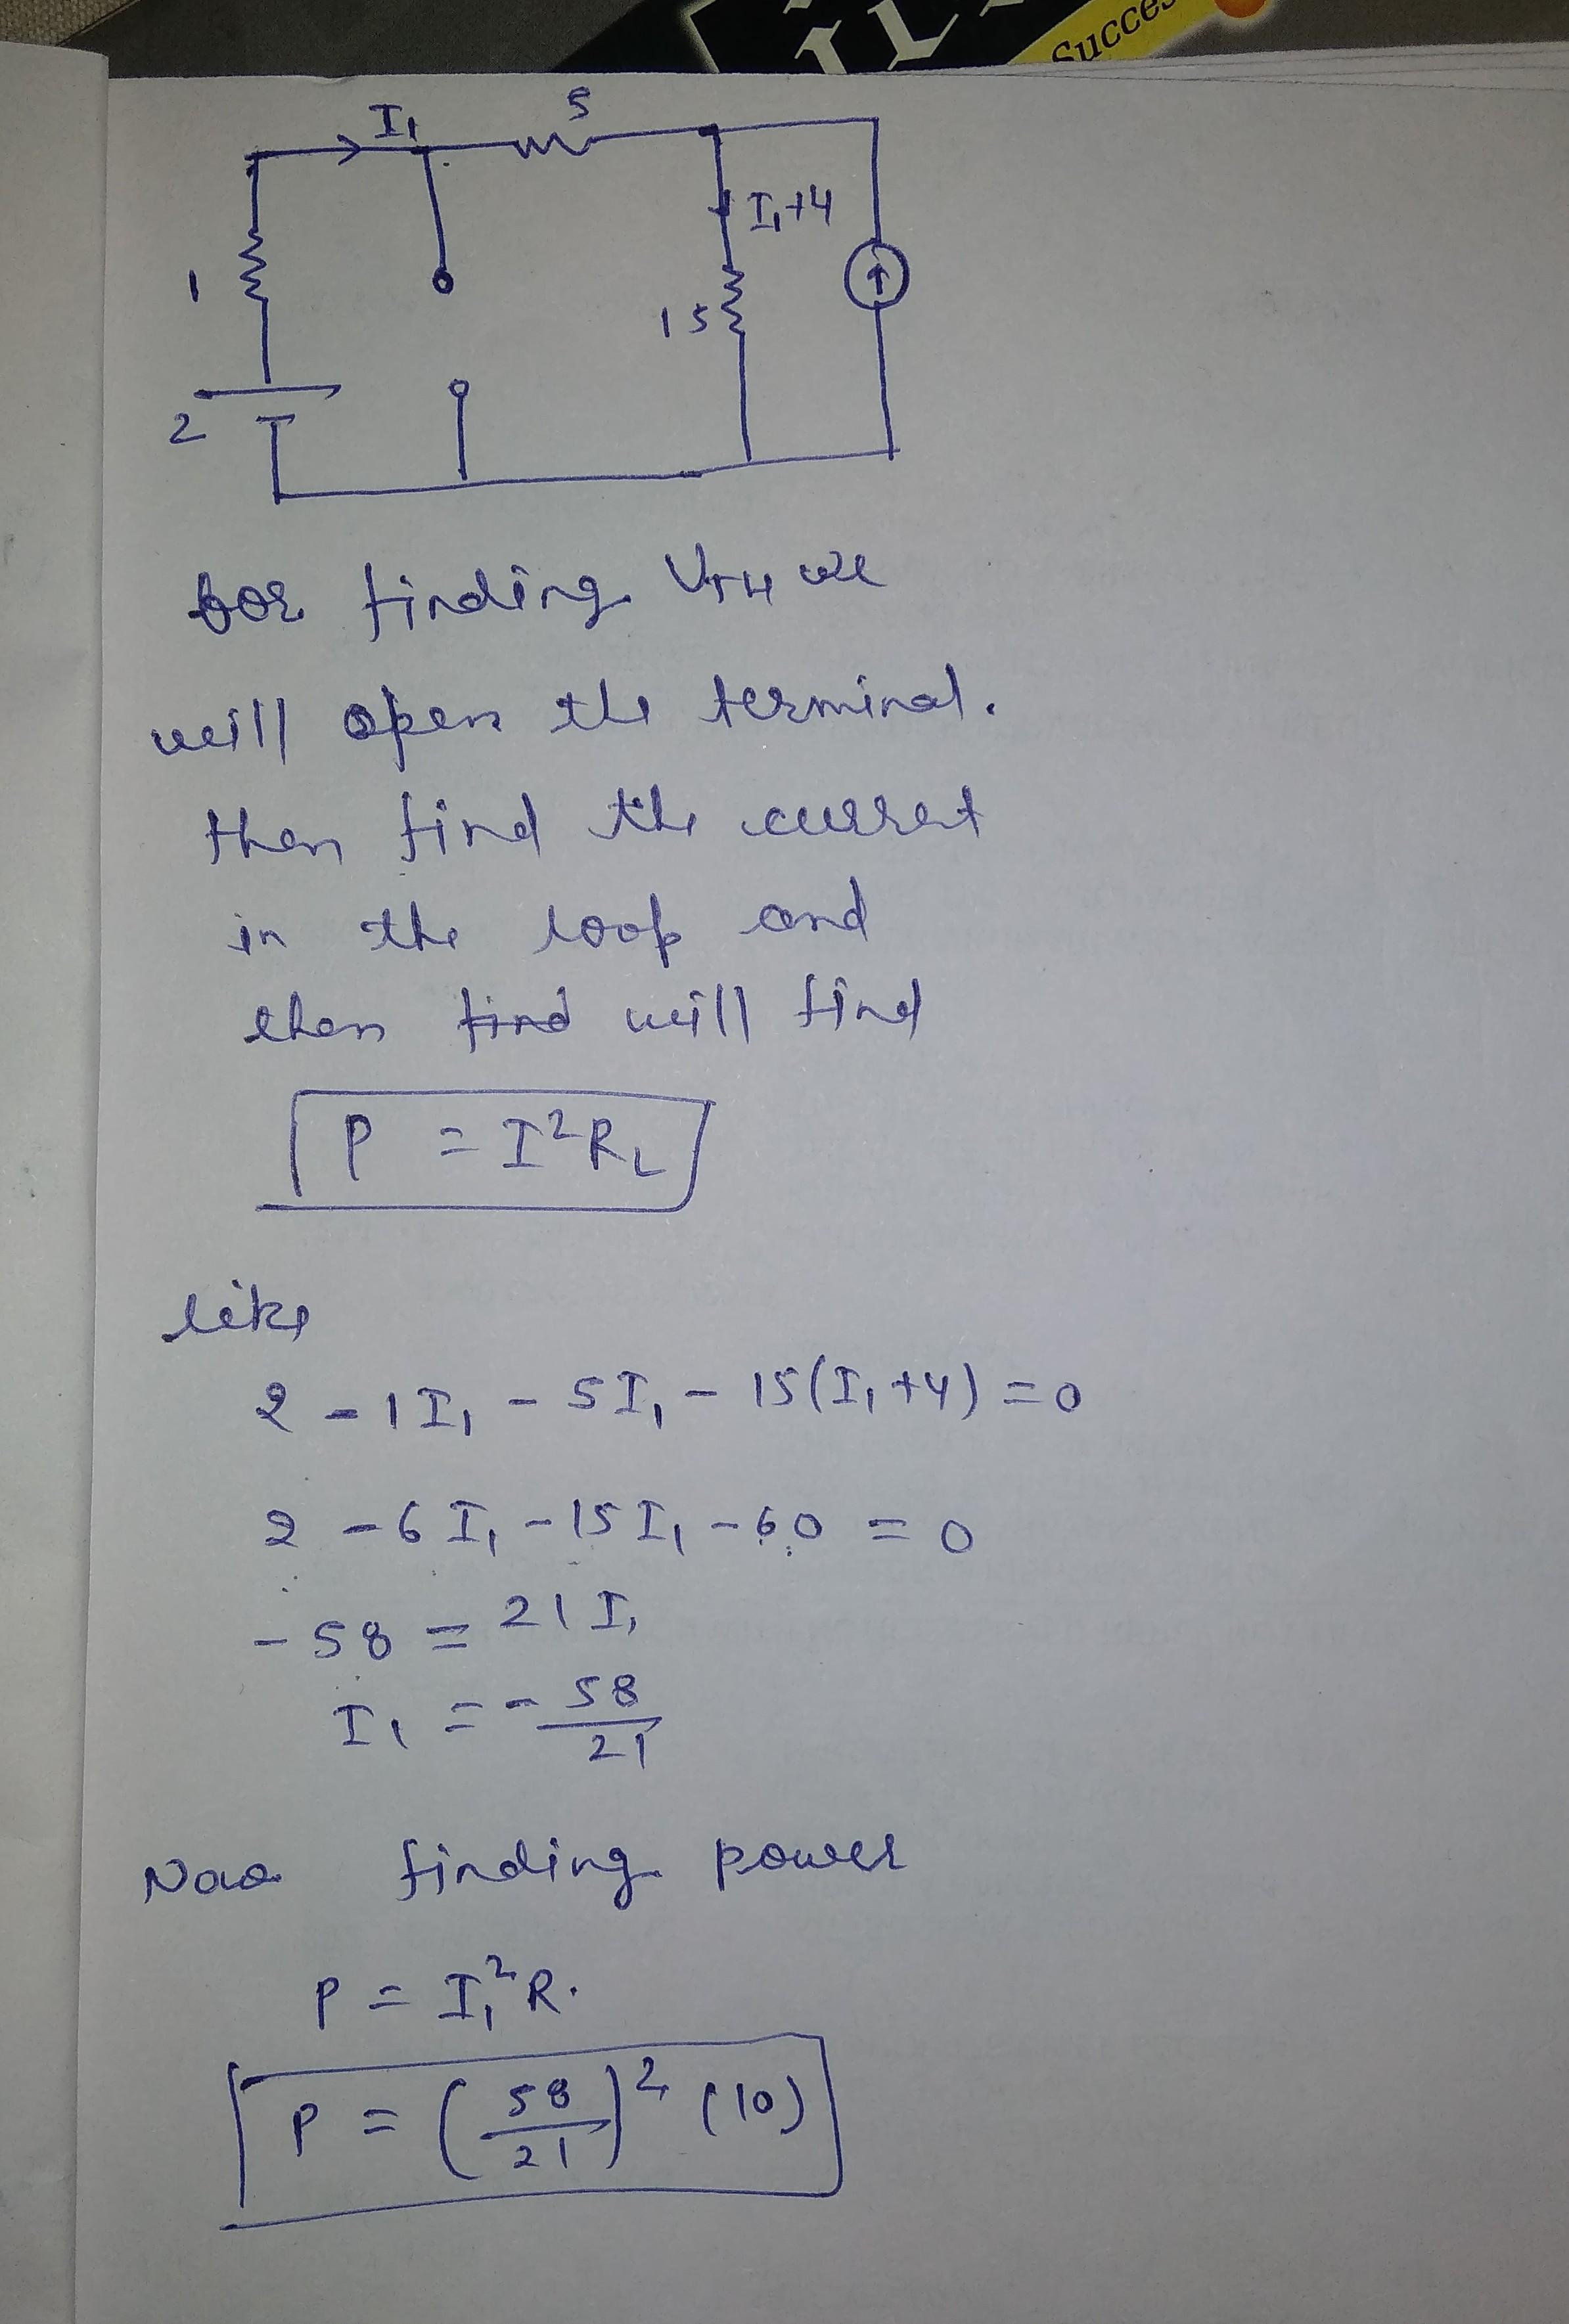 Succes
I₁
5
I₁+4
1
15
2
for finding VTH we
will open the terminal.
then find the current
in the loop and
then find will find
P = I²RL
like
2 - 1I₁ - 5I₁ - 15(I₁+4) = 0
2 - 6I₁ - 15I₁ - 60 = 0
- 58 = 21I₁
I₁ = - 58/21
Now finding power
P = I₁²R.
P = (58/21)² (10)